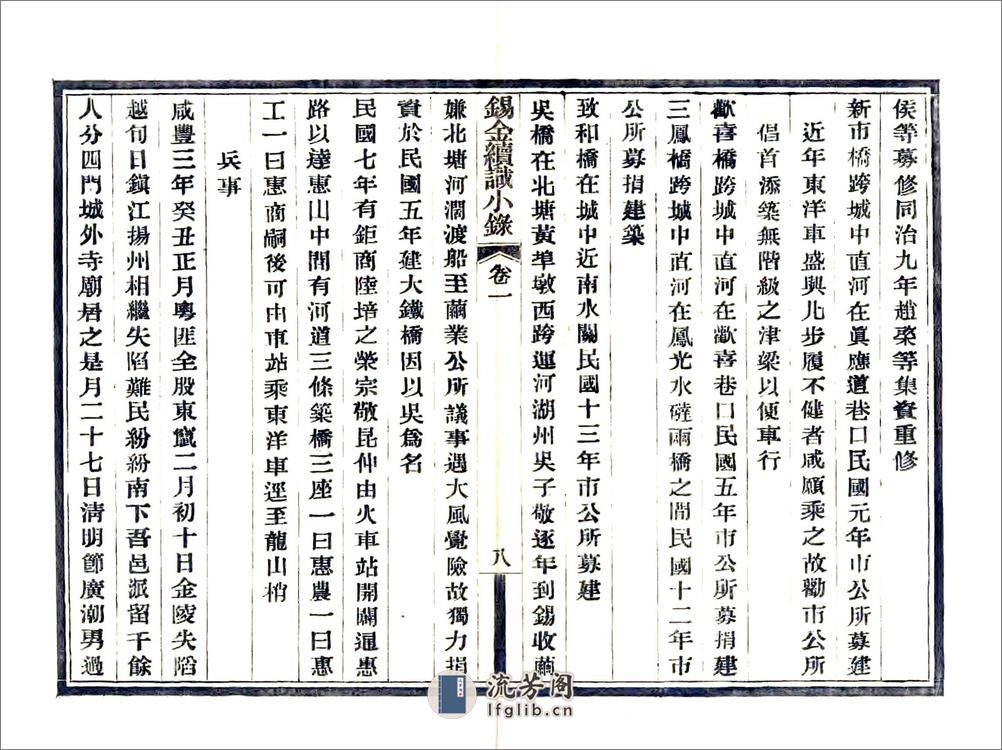 侯等募修同治九年趙榮等集資重修
新市橋跨城中直河在眞應道巷口民國元年市公所募建
近年東洋車盛興凡步履不健者咸願乘之故勸市公所
倡首添築無階級之津梁以便車行
歡喜橋跨城中直河在歡喜巷口民國五年市公所募捐建
三鳳橋跨城中直河在鳳光水㽏兩橋之間民國十二年市
公所募捐建築
致和橋在城中近南水關民國十三年市公所募建
吳橋在北塘黃埠墩西跨運河湖州吳子敬逐年到錫收繭
錫金續識小錄
卷一
八
嫌北塘河濶渡船至繭業公所議事遇大風覺險故獨力捐
資於民國五年建大鐵橋因以吳爲名
民國七年有鉅商陸培之榮宗敬昆仲由火車站開闢通惠
路以達惠山中間有河道三條築橋三座一曰惠農一曰惠
工一曰惠商嗣後可由車站乘東洋車逕至龍山梢
兵事
咸豐三年癸丑正月粵匪全股東竄二月初十日金陵失陷
越旬日鎭江揚州相繼失陷難民紛紛南下吾邑派留千餘
人分四門城外寺廟居之是月二十七日清明節廣潮勇過
流芳阁
lfglib.cn